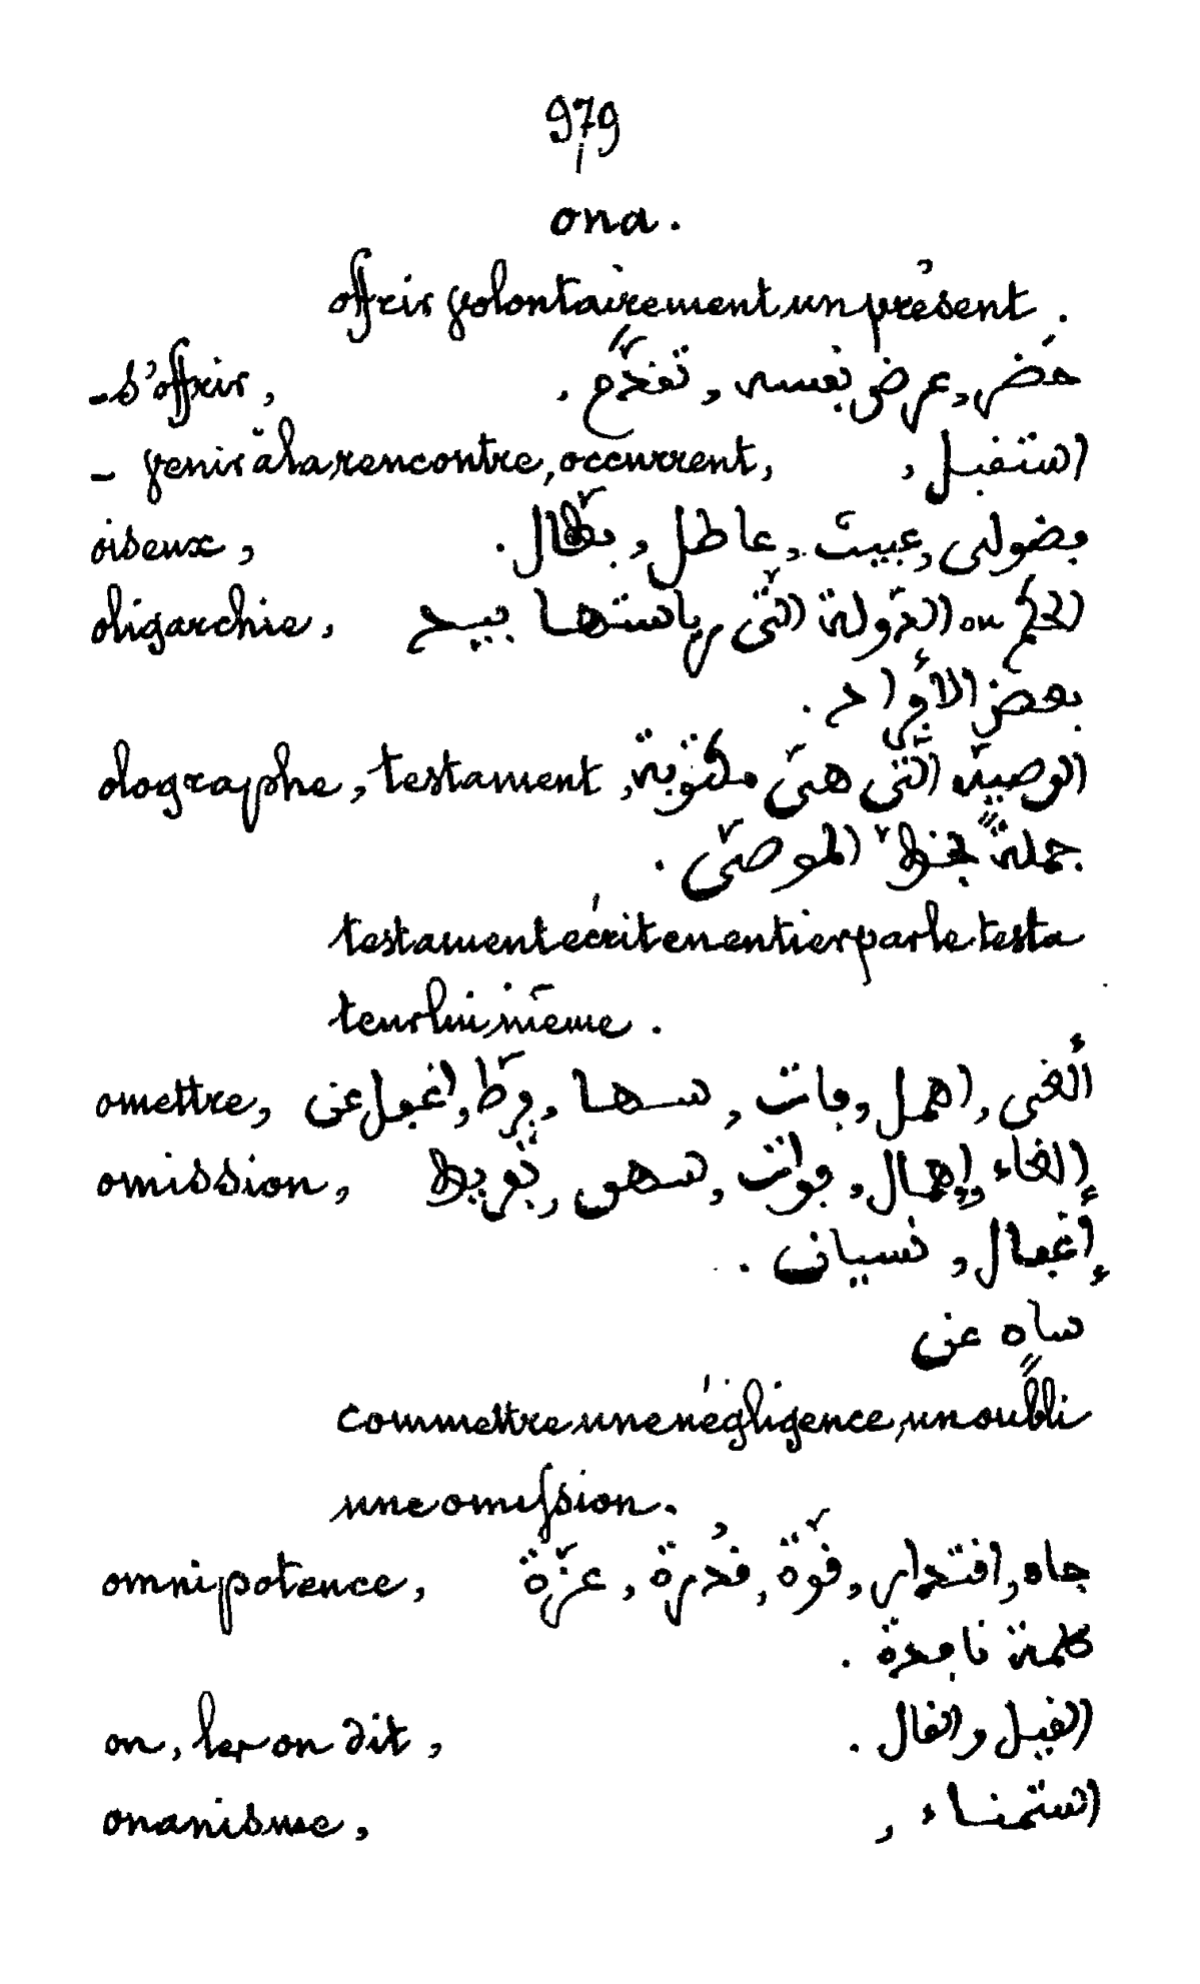 979
ona.
offrir volontairement un présent.
- s'offrir, حَضر, عرض نفسه, تقدّم.
- venir à la rencontre, occurrent, استقبل,
oiseux, فضولى, عبيث, عاطل, بطّال.
oligarchie, الحكم ou الدّولة الّتى رياستها بيد
بعض الأفراد.
olographe, testament, الوصيّة الّتى هىّ مكتوبة
جملةً بخطّ الموصّى.
testament écrit en entier par le testa
teur lui même.
omettre, ألغى, اهمل, فات, سها, فرّط, اغفل عن
omission, إلغاء, إهمال, فوات, سهو, تفريط
إغفال, نسيان.
ساهٍ عن
commettre une négligence, un oubli
une omission.
omnipotence, جاه, اقتدار, قوّة, قدُرة, عزّة
كلمة نافدة.
on, les on dit, القيل والقال.
onanisme, استمناء,